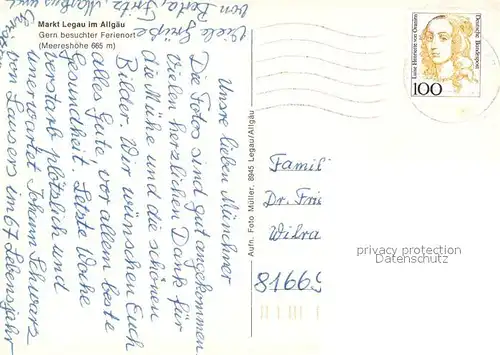 Markt Legau im Allgäu
Gern besuchter Ferienort
(Meereshöhe 665 m)
Unsre lieben Münchner
Die Fotos sind gut angekommen
vielen herzlichen Dank für
die Mühe und die schönen
Bilder. Wir wünschen Euch
alles Gute vor allem beste
Gesundheit. Letzte Woche
verstarb plötzlich und
unerwartet Johann Schwarz
von Lausers im 67 Lebensjahr
Viele Grüße
von Fritz, Markus und
Aufn. Foto Müller, 8945 Legau/Allgäu
Luise Henriette von Oranien
Deutsche Bundespost
100
Famili
Dr. Frie
Wilra
81669
privacy protection
Datenschutz